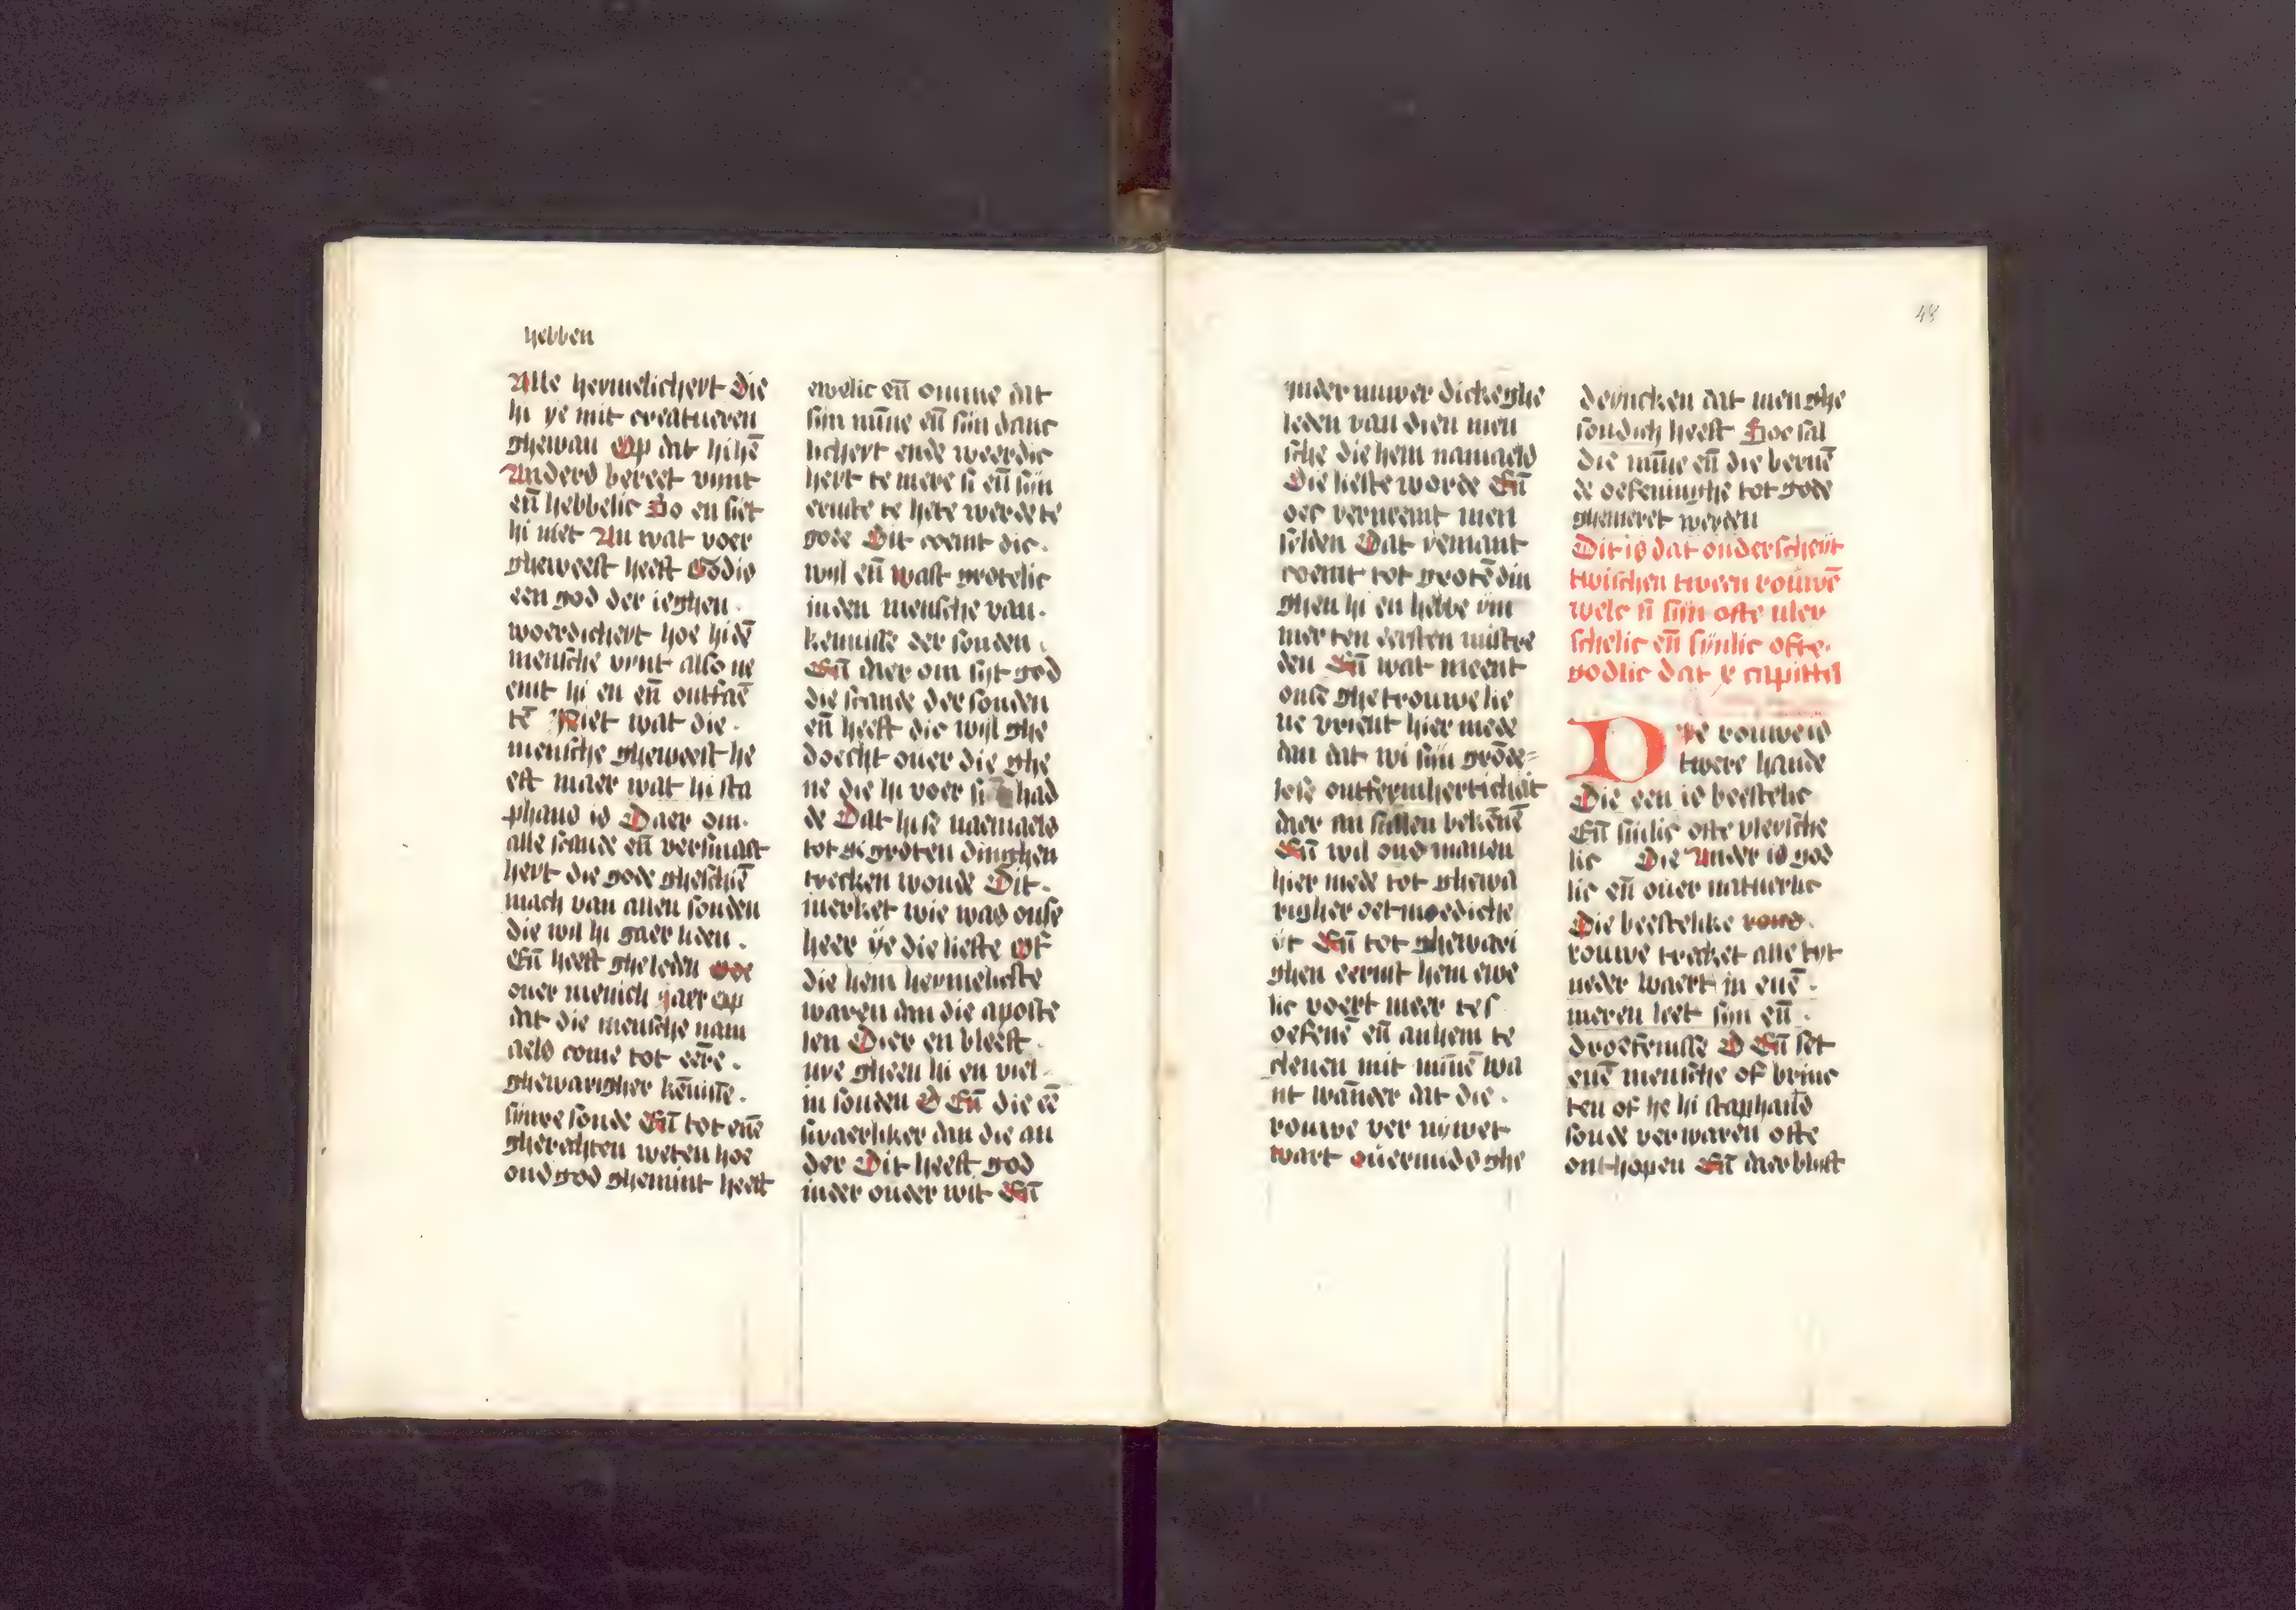 hebben
Alle heymelicheyt die
hi ye mit creatueren
ghewan Op dat hi hē
Anders bereet vynt
eñ hebbelic So en siet
hi niet An wat voer
gheweest heeft God is
een god der ieghen
woerdicheyt hoe hi dē
mensche vynt also ne
emt hi en eñ ontfaē
tē Niet wat die
mensche gheweest he
eft maer wat hi sta
phans is Daer om
alle scande eñ versmaet
heyt die gode gheschiē
mach van allen sonden
die wil hi gaer liden
Eñ heeft gheleden
ouer menich jaer op
dat die mensche nam
aels come tot eēre
ghewarigher kēnisse
sijnre sonde Eñ tot enē
gherechten weten hoe
ons god ghemint heeft
ewelic eñ omme dat
sijn mīne eñ sijn danc
licheyt ende weerdic
heyt te mere si eñ sijn
ernste te hete werde te
gode Dit coemt dic
wijl eñ wast grotelic
inden mensche van
kennisse der sonden
Eñ daer om sijt god
die scande der sonden
eñ heeft die wijl ghe
doecht ouer die ghe
ne die hi voer si had
de Dat hise naemaels
tot gro groten dinghen
trecken wonde Dit
merket wie was onse
heer ye die liefte of
die hem heymelicste
waren dan die aposte
len Dier en bleeft
nye gheen hi en viel
in sonden Eñ die eē
swaerliker dan die an
der Dit heeft god
inder ouder wit Eñ
inder nuwer dicke ghe
leden van dien men
sche die hem namaels
Die liefste worde Eñ
oec verneemt men
selden Dat yemant
coemt tot grotē din
ghen hi en hebbe ym
mer ten eersten mistre
den Eñ wat meent
onse ghetrouwe lie
ue vrient hier mede
dan dat wi sijn grōde
lose ontfermherticheit
daer an sullen bekēnē
Eñ wil ons manen
hier mede tot ghewa
righer oetmoediche
yt Eñ tot ghewari
ghen eernst hem ewe
lic voert meer te
oefenē eñ an hem te
cleuen mit mīnē wa
nt wāneer dat die
rouwe ver nywet
wart ouermids ghe
deyncken dat men ghe
sondich heeft Hoe sal
die mīne eñ die bernē
de oefeninghe tot gode
ghemeret werden
Dit is dat onderscheyt
twischen tween rouwē
welc si sijn ofte vley
schelic eñ sijnlic ofte
godlic dat x capittel
Die rouwe is
twere hande
Die een is beestelic
Eñ sinlic ofte vleysche
lic Die Ander is god
lic eñ ouer natuerlic
Die beestelike
rouwe trecket alle tyt
neder waert in enē
meren leet sijn eñ
droefenisse Eñ set
enē mensche of brinc
ten of he hi staphāds
soude verwaren ofte
onthopen Eñ daer blijft
48